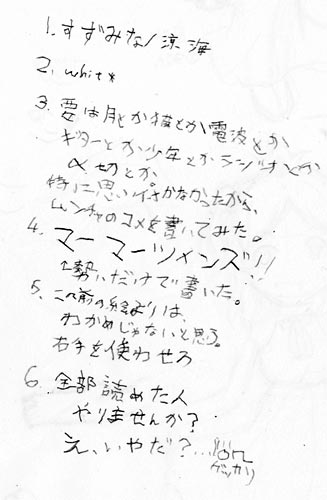 1. すずみな/涼海
2. white
3. 要は月とか猫とか電波とか
ギターとか少年とかラジオとか
〆切とか
特に思いイキかなかったから、
ムンチャのコメを書いてみた。
4. マーマーツメンズ!!
↑勢いだけで書いた。
5. この前の絵よりは、
わかめじゃないと思う。
右手を使わせろ
6. 全部読めた人
やりませんか?
え、いやだ?…
ゲッカリ